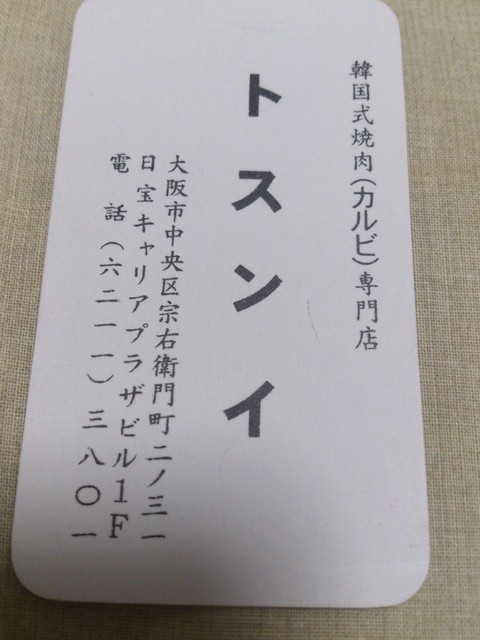 韓国式焼肉(カルビ)専門店
トスンイ
大阪市中央区宗右衛門町二ノ三一
日宝キャリアプラザビル1F
電話(六二一一)三八〇一